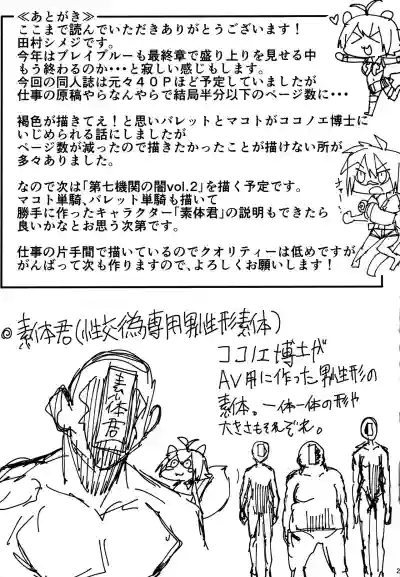 ≪あとがき≫
ここまで読んでいただきありがとうございます！
田村シメジです。
今年はブレイブルーも最終章で盛り上りを見せる中
もう終わるのか・・・と寂しい感じもします。
今回の同人誌は元々４０Ｐほど予定していましたが
仕事の原稿やらなんやらで結局半分以下のページ数に・・・
褐色が描きてえ！と思いバレットとマコトがココノエ博士に
いじめられる話にしましたが
ページ数が減ったので描きたかったことが描けない所が
多々ありました。
なので次は「第七機関の闇vol.2」を描く予定です。
マコト単騎、バレット単騎も描いて
勝手に作ったキャラクター「素体君」の説明もできたら
良いかなとお思う次第です。
仕事の片手間で描いているのでクオリティーは低めですが
がんばって次も作りますので、よろしくお願いします！
◎素体君(性交為専用男性形素体)
ココノエ博士が
AV用に作った男性形の
素体。一体一体の形や
大きさもそれぞれ。
素体君
2